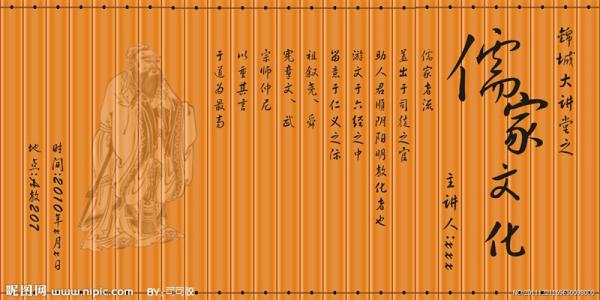 锦城大讲堂之
儒家文化
主讲人：七七七七
儒家者流
盖出于司徒之官
助人君顺阴阳明教化者也
游文于六经之中
留意于仁义之际
祖叙尧、舜
宪章文、武
宗师仲尼
以重其言
于道为最高
时间：2010年七月七日
地点：教207
昵图网 www.nipic.com
BY:可可胶